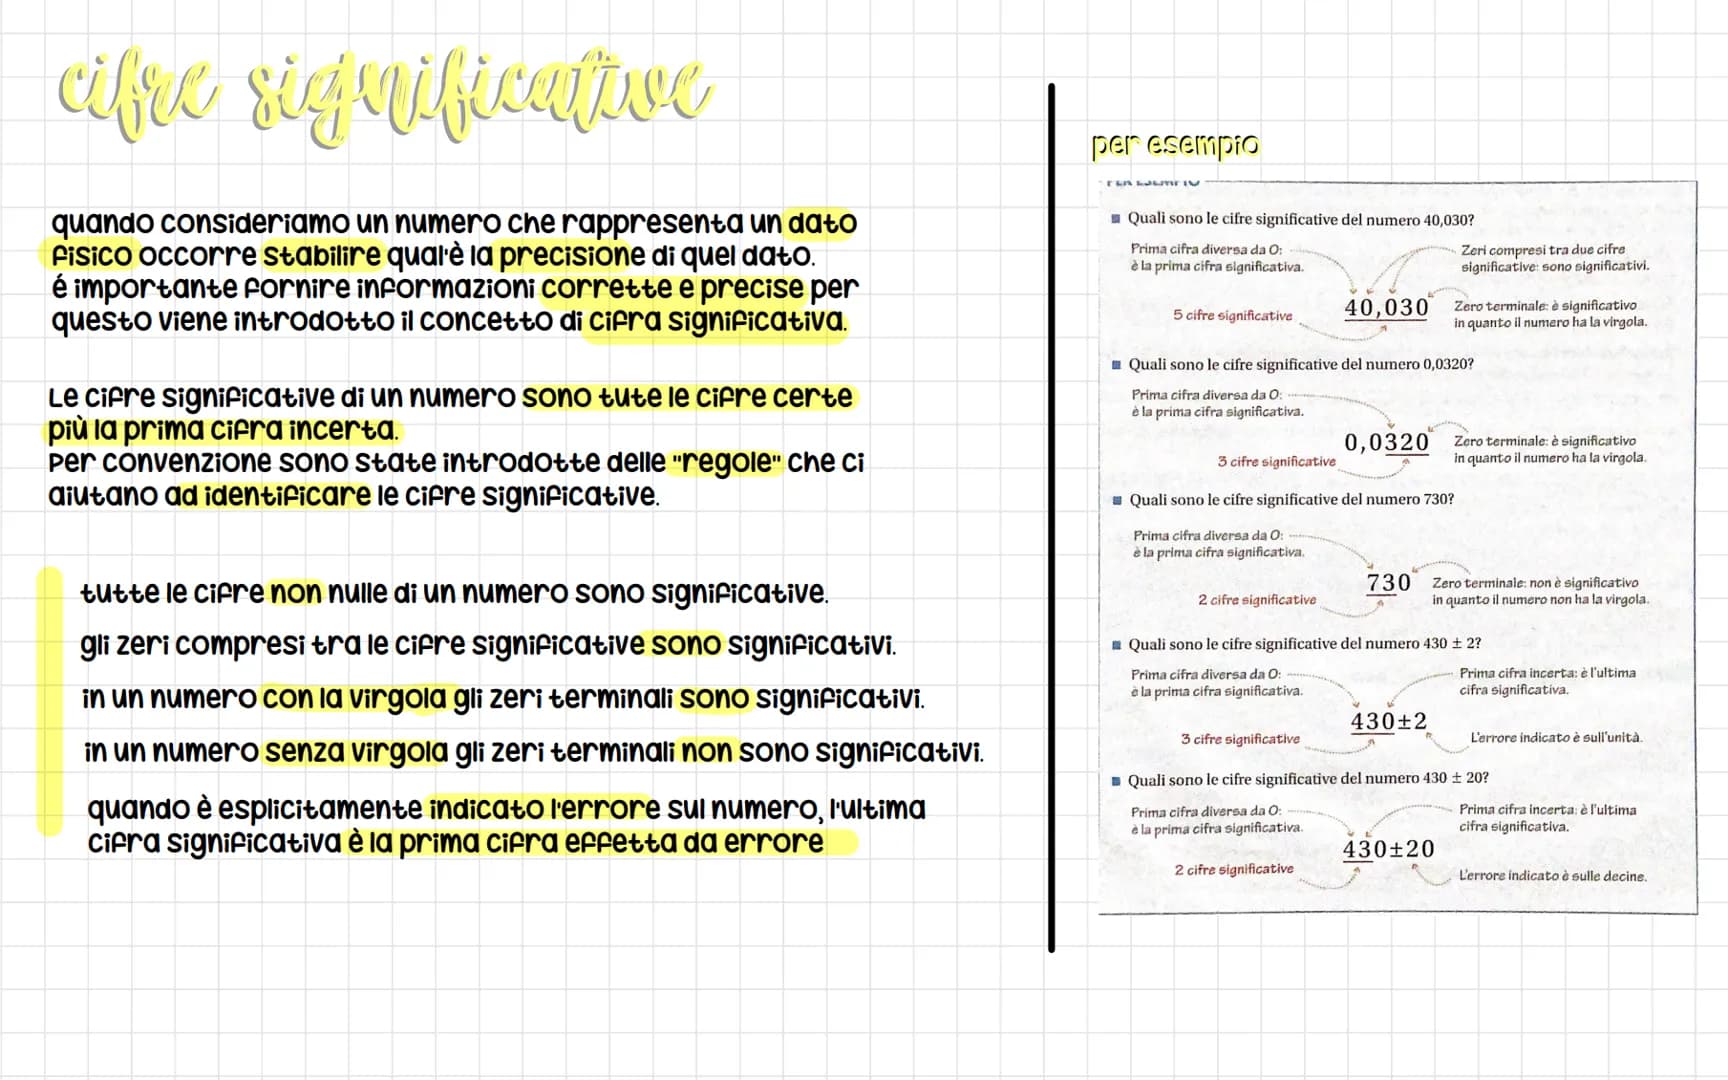 cifre significative
quando consideriamo un numero che rappresenta un dato
fisico occorre stabilire qual'è la precisione di quel dato.
é importante fornire informazioni corrette e precise per
questo viene introdotto il concetto di cifra significativa.
Le cifre significative di un numero sono tute le cifre certe
più la prima cifra incerta.
Per convenzione sono state introdotte delle "regole" che ci
aiutano ad identificare le cifre significative.
tutte le cifre non nulle di un numero sono significative.
gli zeri compresi tra le cifre significative sono significativi.
in un numero con la virgola gli zeri terminali sono significativi.
in un numero senza virgola gli zeri terminali non sono significativi.
quando è esplicitamente indicato l'errore sul numero, l'ultima
cifra significativa è la prima cifra effetta da errore
per esempio
PER ESEMPIO
Quali sono le cifre significative del numero 40,030?
Prima cifra diversa da 0:
è la prima cifra significativa.
Zeri compresi tra due cifre
significative: sono significativi.
40,030
5 cifre significative
Zero terminale: è significativo
in quanto il numero ha la virgola.
Quali sono le cifre significative del numero 0,0320?
Prima cifra diversa da 0:
è la prima cifra significativa.
0,0320
3 cifre significative
Zero terminale: è significativo
in quanto il numero ha la virgola.
Quali sono le cifre significative del numero 730?
Prima cifra diversa da 0:
è la prima cifra significativa.
730
2 cifre significative
Zero terminale: non è significativo
in quanto il numero non ha la virgola.
Quali sono le cifre significative del numero 430 ± 2?
Prima cifra diversa da 0:
è la prima cifra significativa.
Prima cifra incerta: è l'ultima
cifra significativa.
430±2
3 cifre significative
L'errore indicato è sull'unità.
Quali sono le cifre significative del numero 430 ± 20?
Prima cifra diversa da 0:
è la prima cifra significativa.
Prima cifra incerta: è l'ultima
cifra significativa.
430±20
2 cifre significative
L'errore indicato è sulle decine.